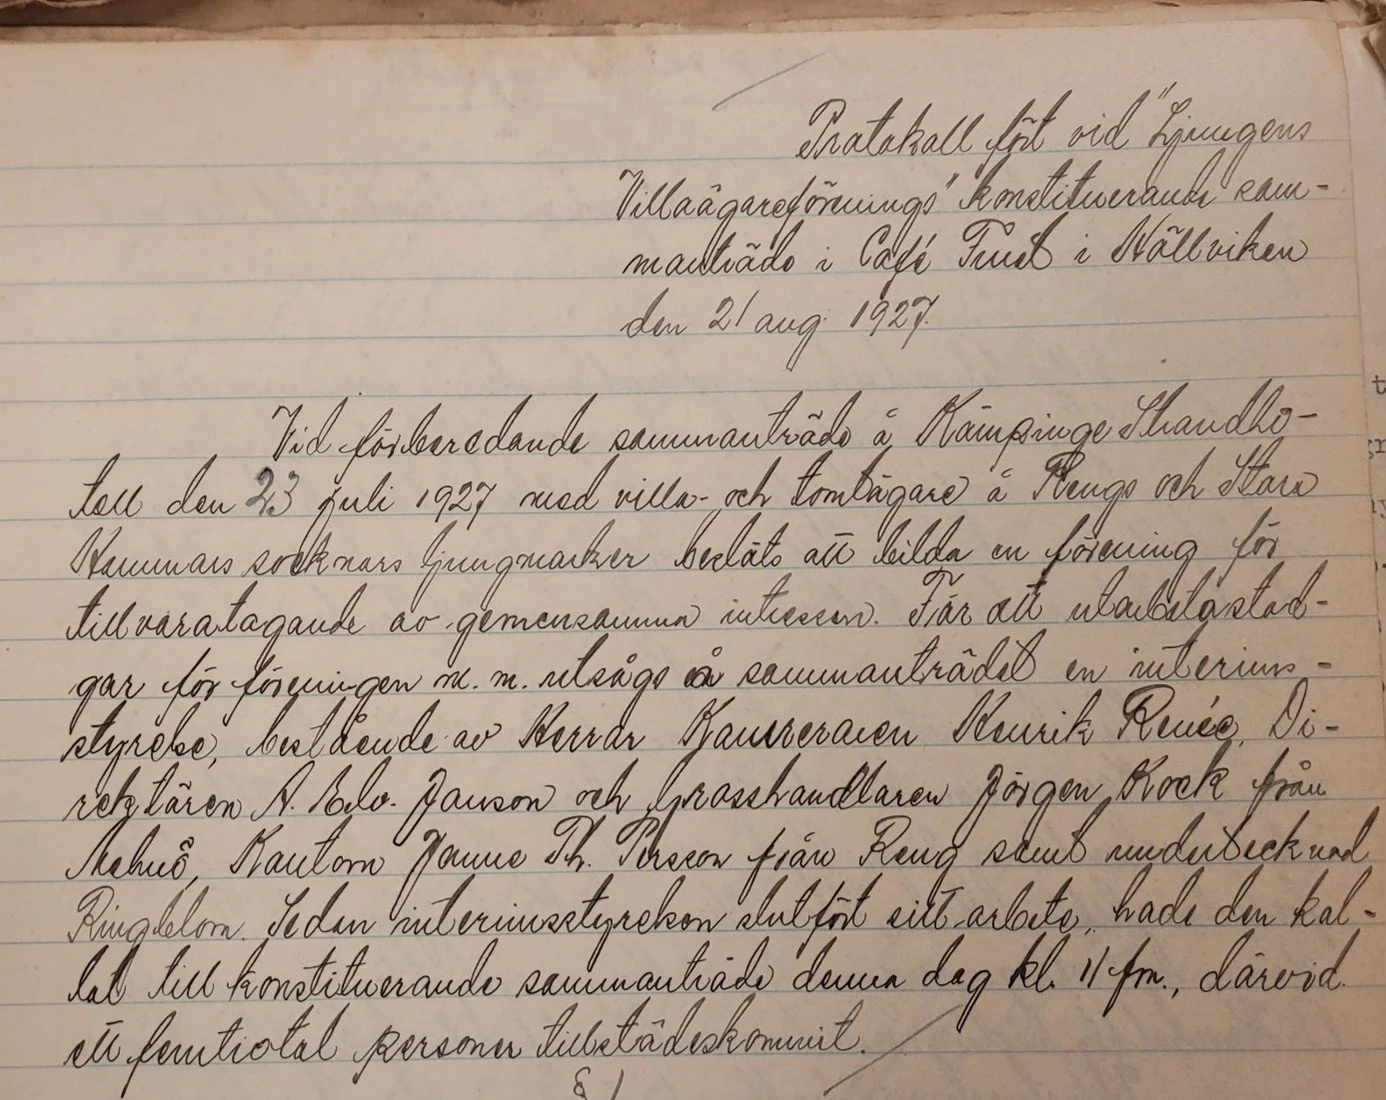 Protokoll fört vid "Ljungens
Villaägareförenings" konstituerande sam-
manträde i Café Trud i Höllviken
den 21 aug. 1927.
Vid förberedande sammanträde å Kämpinge Strandho-
tell den 23 juli 1927 med villa- och tomtägare å Rengs och Stora
Hammars socknars ljungmarker beslöts att bilda en förening för
tillvaratagande av gemensamma intressen. För att utarbeta stad-
gar för föreningen m. m. utsågs å sammanträdet en interims-
styrelse, bestående av Herrar Kamreraren Henrik Renée, Di-
rektören A. Edv. Janson och Grosshandlaren Jörgen Kock från
Malmö, Kantorn Janne Th. Persson från Reng samt undertecknad
Ringblom. Sedan interimsstyrelsen slutfört sitt arbete, hade den kal-
lat till konstituerande sammanträde denna dag kl. 11 fm., därvid
ett femtiotal personer tillstädeskommit.
§ 1